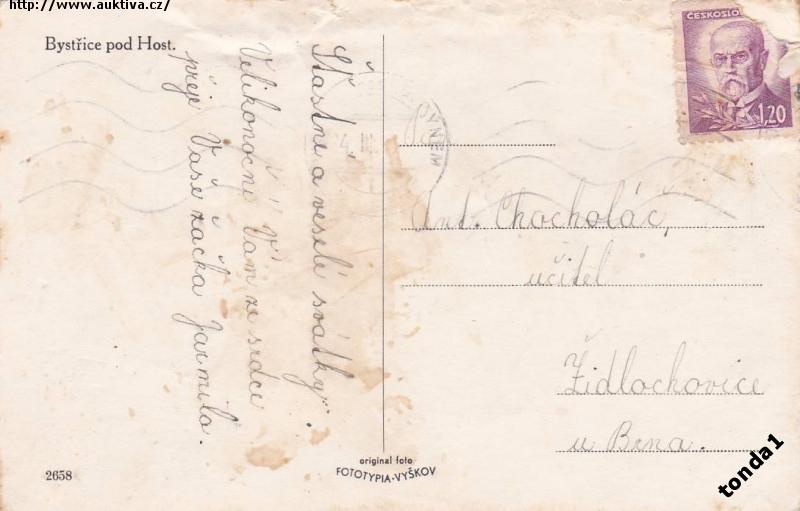 http://www.auktiva.cz/
Bystřice pod Host.
Šťastné a veselé svátky
Velikonoční Vám ze srdce
přeje Vaše žačka Jarmila.
ČESKOSLO
1,20
Ant. Chocholáč,
učitel
Židlochovice
u Brna.
2658
original foto
FOTOTYPIA-VYŠKOV
tonda1